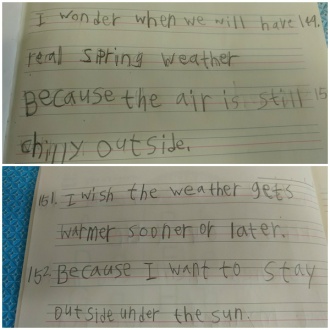 I wonder when we will have 149.
real spring weather
Because the air is still 15
chilly outside.
151. I wish the weather gets
warmer sooner or later.
152. Because I want to stay
outside under the sun.